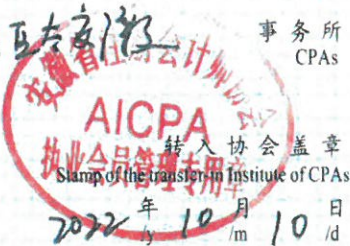 事务所
CPAs
安徽省注册会计师协会
AICPA
执业会员管理专用章
转入协会盖章
Stamp of the transfer-in Institute of CPAs
2022年 10月 10日
/y /m /d